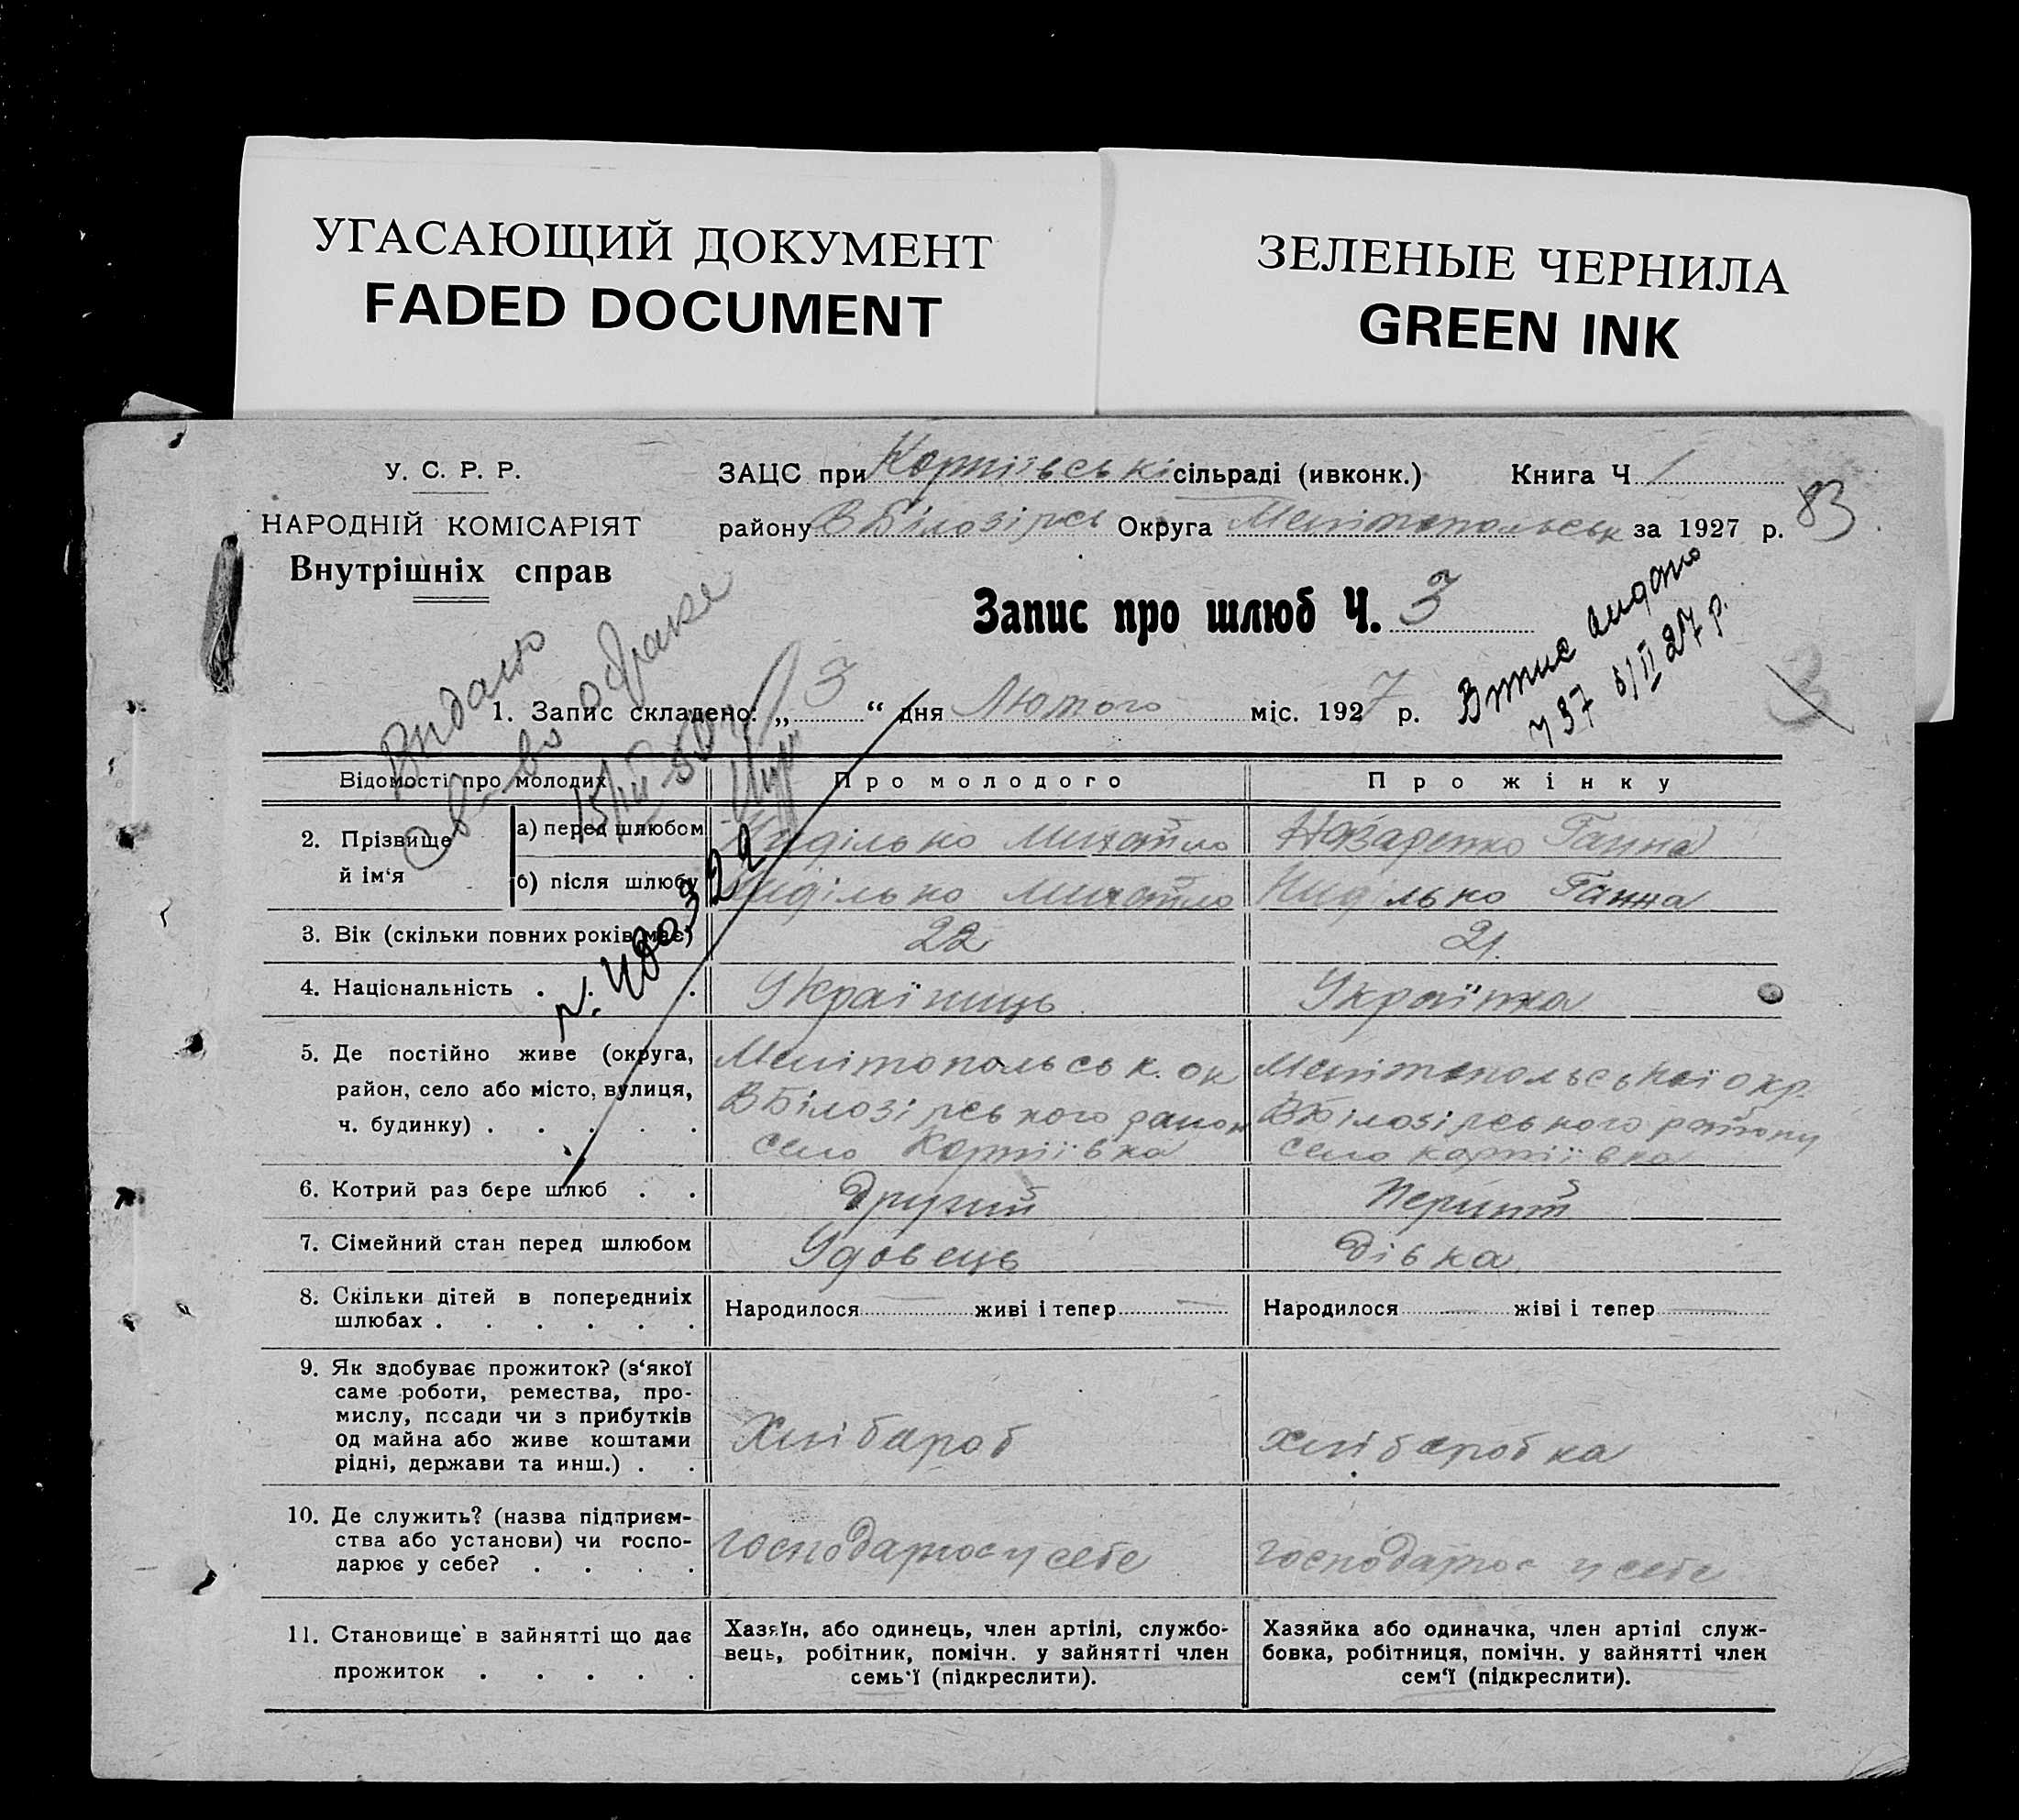 УГАСАЮЩИЙ ДОКУМЕНТ
FADED DOCUMENT
ЗЕЛЕНЫЕ ЧЕРНИЛА
GREEN INK
У. С. Р. Р.
НАРОДНІЙ КОМІСАРІЯТ
Внутрішніх справ
ЗАЦС при Корніївські сільраді (ивконк.) Книга Ч 1
району ВБілозірсь Округа Мелітопольськ за 1927 р.
83
Запис про шлюб Ч. 3
Видано
15/IV 50
Витис видано
ч 37 5/II 27 р.
3
1. Запис складено: „ 3 “ дня Лютого міс. 1927 р.
Відомості про молодих
Про молодого
Про жінку
2. Прізвище й ім‘я
а) перед шлюбом Ниділько Михайло Назаренко Ганна
б) після шлюбу Ниділько Михайло Ниділько Ганна
3. Вік (скільки повних років має) 22 21.
4. Національність . . . . Українць Українка
5. Де постійно живе (округа,
район, село або місто, вулиця,
ч. будинку) . . . . .
Мелітопольськ. ок
ВБілозірського район
село Корніївка
Мелітопольської окр.
ВБілозірського району
село корніївка
6. Котрий раз бере шлюб . . Другий Перший
7. Сімейний стан перед шлюбом Удовець Дівка
8. Скільки дітей в попередниіх
шлюбах . . . . . .
Народилося — живі і тепер —
Народилося — жіві і тепер —
9. Як здобуває прожиток? (з‘якої
саме роботи, ремества, про-
мислу, посади чи з прибутків
од майна або живе коштами
рідні, держави та инш.) . .
Хлібароб
хлібаробка
10. Де служить? (назва підприєм-
ства або установи) чи госпо-
дарює у себе? . . . .
господарює у себе
господарює у себе
11. Становище в зайнятті що дає
прожиток . . . . .
Хазяїн, або одинець, член артілі, службо-
вець, робітник, помічн. у зайнятті член
семь‘ї (підкреслити).
Хазяйка або одиначка, член артілі служ-
бовка, робітниця, помічн. у зайнятті член
сем‘ї (підкреслити).